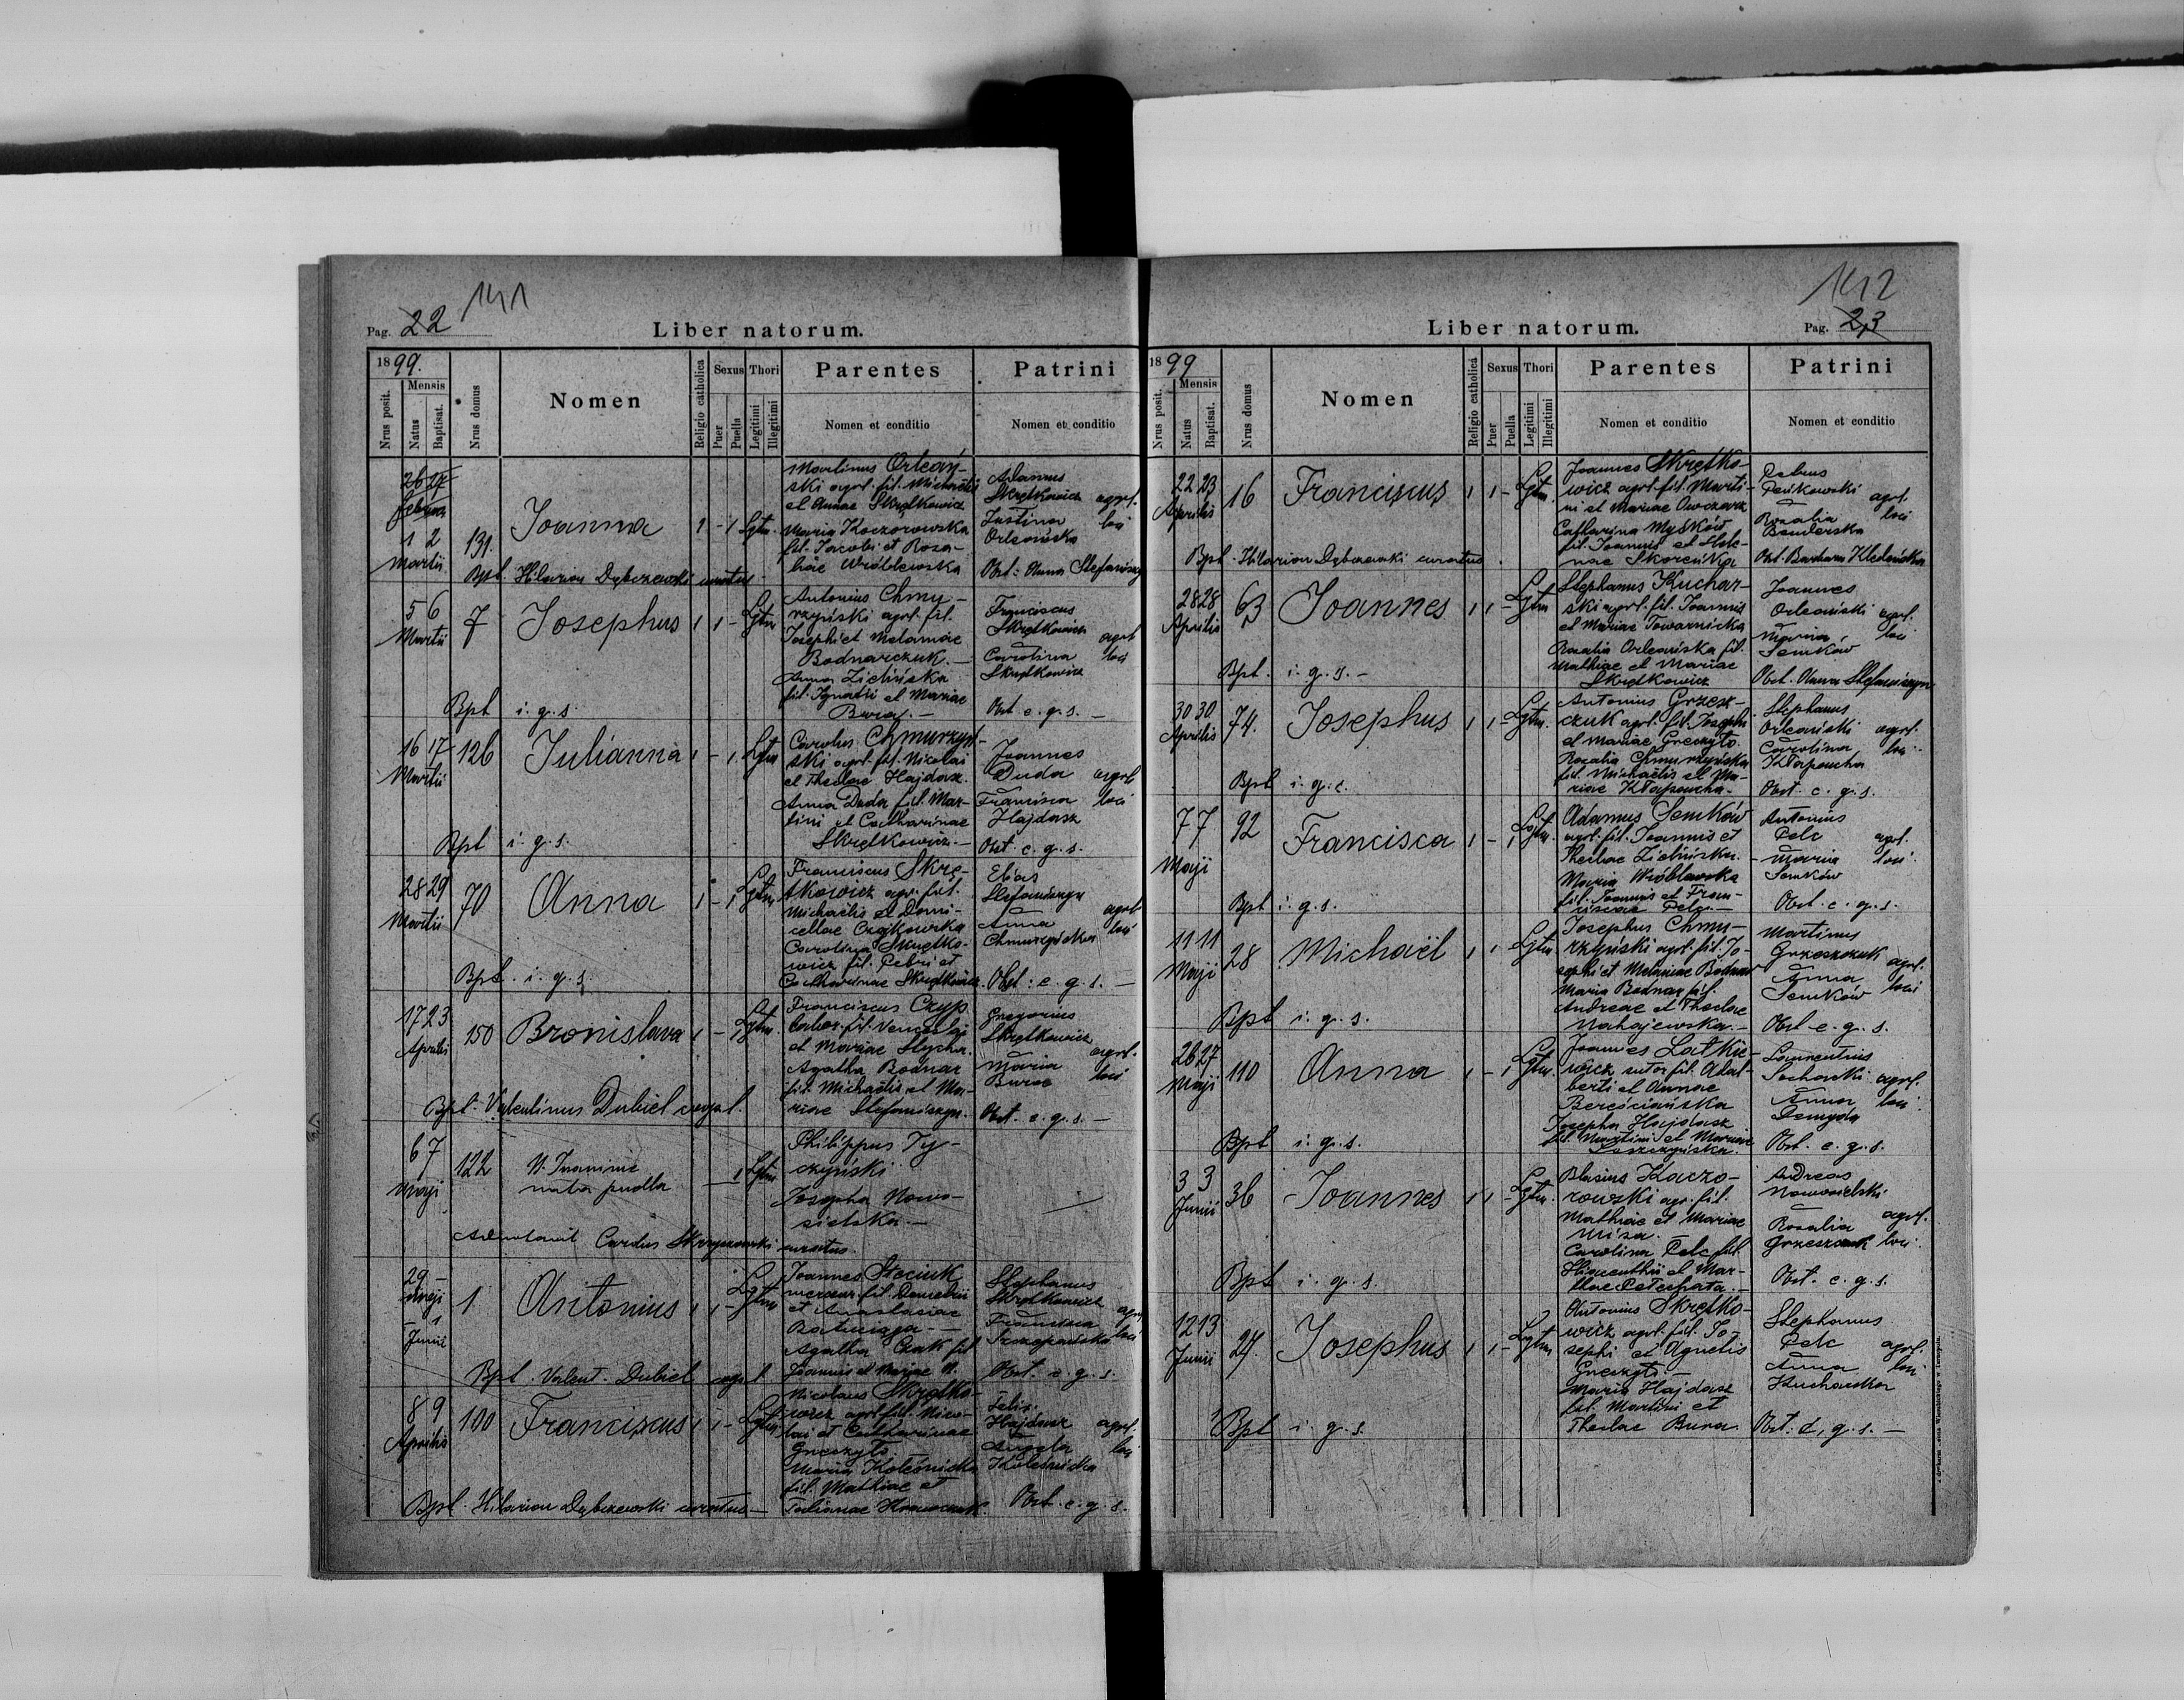 141
Pag. 22
Liber natorum.
1899.
Nrus posit.
Mensis
Natus
Baptisat.
Nrus domus
Nomen
Religio catholica
Sexus
Puer
Puella
Thori
Legitimi
Illegitimi
Parentes
Nomen et conditio
Patrini
Nomen et conditio
26 27
1 2
Martii
131.
Joanna
1 - 1 Lgtm.
Martinus Orleań-
ski agrl. fil. Michaëlis
et Annae Skrętkowicz
Maria Kaczorowska
fil. Jacobi et Rosa-
liae Wróblewska
Adamus
Skrętkowicz agrl.
Justina loci
Orleańska
Obst: Anna Stefaniszyn
Bpt. Hilarion Dąbczewski curatus
5 6
Martii
7
Josephus
1 1 - Lgtm
Antonius Chmu-
rzyński agrl. fil.
Josephi et Melaniae
Bodnarczuk. -
Anna Zielińska
fil. Ignatii et Mariae
Buraj. -
Franciscus
Skrętkowicz agrl
Carolina loci
Skrętkowicz
Obst c. g. s. -
Bpt i. g. s.
16 17
Martii
126
Julianna
1 - 1 Lgtm
Carolus Chmurzyń-
ski agrl. fil. Nicolai
et Theclae Hajdasz.
Anna Duda fil. Mar-
tini et Catharinae
Skrętkowicz. -
Joannes
Duda agrl
Francisca loci
Hajdasz
Obst. c. g. s.
Bpt i. g. s.
28 29
Martii
70
Anna
1 - 1 Lgtm
Franciscus Skrę-
tkowicz agr. fil.
Michaëlis et Domi-
cellae Czajkowska
Carolina Skrętko-
wicz fil. Petri et
Catharinae Skrętkowicz.
Elias
Stefaniszyn
Anna agrl
Chmurzyńska loci
Obst: c. g. s. -
Bpt. i. g. s.
17 23
Aprilis
150
Bronislava
1 - 1 Lgtm.
Franciscus Czyp
fil. Venceslai
et Mariae Slycha.
Agatha Bodnar
fil. Michaëlis et Ma-
riae Stefaniszyn.
Gregorius
Skrętkowicz
Maria agrl.
Burac loci
Obst. c. g. s. -
Bpt. Valentinus Dubiel
6 7
Maji
122
N. Inanime
nata puella
- 1 Lgtm
Philippus Ty-
czyński
Josepha Nowo-
sielska -
Adnotavit Carolus Skrzyszowski curatus.
29 -
Maji
1
Junii
1
Antonius
1 1 - Lgtm
Joannes Steciuk
fil. Demetrii
et Anastasiae
Agatha Czak fil
Joannis et Mariae N.
Stephanus
Skrętkowicz agrl
Francisca loci
Szczepańska
Obst. c. g. s.
Bpt. Valent. Dubiel
8 9
Aprilis
100
Franciscus
1 1 - Lgtm
Nicolaus Skrętko-
wicz agrl. fil. Nico-
lai et Catharinae
Greczyło
Maria Koleśnicka
fil. Mathiae et
Julianae
Felix
Hajdasz agrl.
Angela loci
Koleśnicka
Obst. c. g. s.
Bpt. Hilarion Dąbczewski curatus -
142
Liber natorum.
Pag. 23
1899
Nrus posit.
Mensis
Natus
Baptisat.
Nrus domus
Nomen
Religio catholica
Sexus
Puer
Puella
Thori
Legitimi
Illegitimi
Parentes
Nomen et conditio
Patrini
Nomen et conditio
22 23
Aprilis
16
Franciscus
1 1 - Lgtm.
Joannes Skrętko-
wicz agrl. fil. Marti-
ni et Mariae Owczarz
Catharina Myśków
fil. Joannis et Hele-
nae Skoreńka
Petrus
Peńkowski agrl.
Rosalia loci
Benderska
Obst. Barbara
Bpt. Hilarion Dąbczewski curatus.
28 28
Aprilis
63
Joannes
1 1 - Lgtm
Stephanus Kuchar-
ski agrl. fil. Joannis
et Mariae Towarnicka
Rosalia Orleańska fil.
Mathiae et Mariae
Skrętkowicz
Joannes
Orleański agrl.
Maria loci
Semków
Obst. Anna Stefaniszyn
Bpt. i. g. s. -
30 30
Aprilis
74.
Josephus
1 1 - Lgtm.
Antonius Grzesz-
czuk agrl. fil. Josephi
et Mariae Greczyło.
Rosalia Chmurzyńska
fil. Michaëlis et Ma-
riae Kłapoucha.
Stephanus
Orleański agrl.
Carolina loci.
Kłapoucha
Obst. c. g. s.
Bpt i. g. s.
7 7
Maji
92
Francisca
1 - 1 Lgtm.
Adamus Semków
agrl. fil. Joannis et
Theclae Zielińska.
Maria Wróblewska
fil. Joannis et Fran-
ciscae Pelc. -
Antonius
Pelc agrl.
Maria loci.
Semków
Obst. c. g. s.
Bpt i. g. s.
11 11
Maji
28
Michaël
1 1 Lgtm
Josephus Chmu-
rzyński agrl. fil. Jo-
sephi et Melaniae Bodnar
Maria Bodnar fil.
Andreae et Theclae
Nahajewska. -
Martinus
Grzeszczuk agrl.
Anna loci
Semków
Obst c. g. s.
Bpt i. g. s.
26 27
Maji
110
Anna
1 - 1 Lgtm.
Joannes Latkie-
wicz sutor fil. Adal-
berti et Annae
Bereściańska
Josepha Hajdasz
fil. Martini et Mariae
Laurentius
Sochacki agrl.
Anna loci.
Demyda
Obst. c. g. s.
Bpt i. g. s.
3 3
Junii
36
Joannes
1 1 - Lgtm.
Blasius Kaczo-
rowski agr. fil.
Mathiae et Mariae
Misa.
Carolina Pelc fil.
Hiacenthii et Mar-
thae
Andreas
Nowosielski
agrl.
Rosalia
Grzeszczuk loci.
Obst. c. g. s.
Bpt i. g. s.
12 13
Junii
27.
Josephus
1 1 - Lgtm
Antonius Skrętko-
wicz agrl. fil. Jo-
sephi et Agnetis
Greczyło -
Maria Hajdasz
fil. Martini et
Theclae Bura.
Stephanus
Pelc agrl.
Anna loci
Kucharska
Obst: c. g. s. -
Bpt i. g. s.